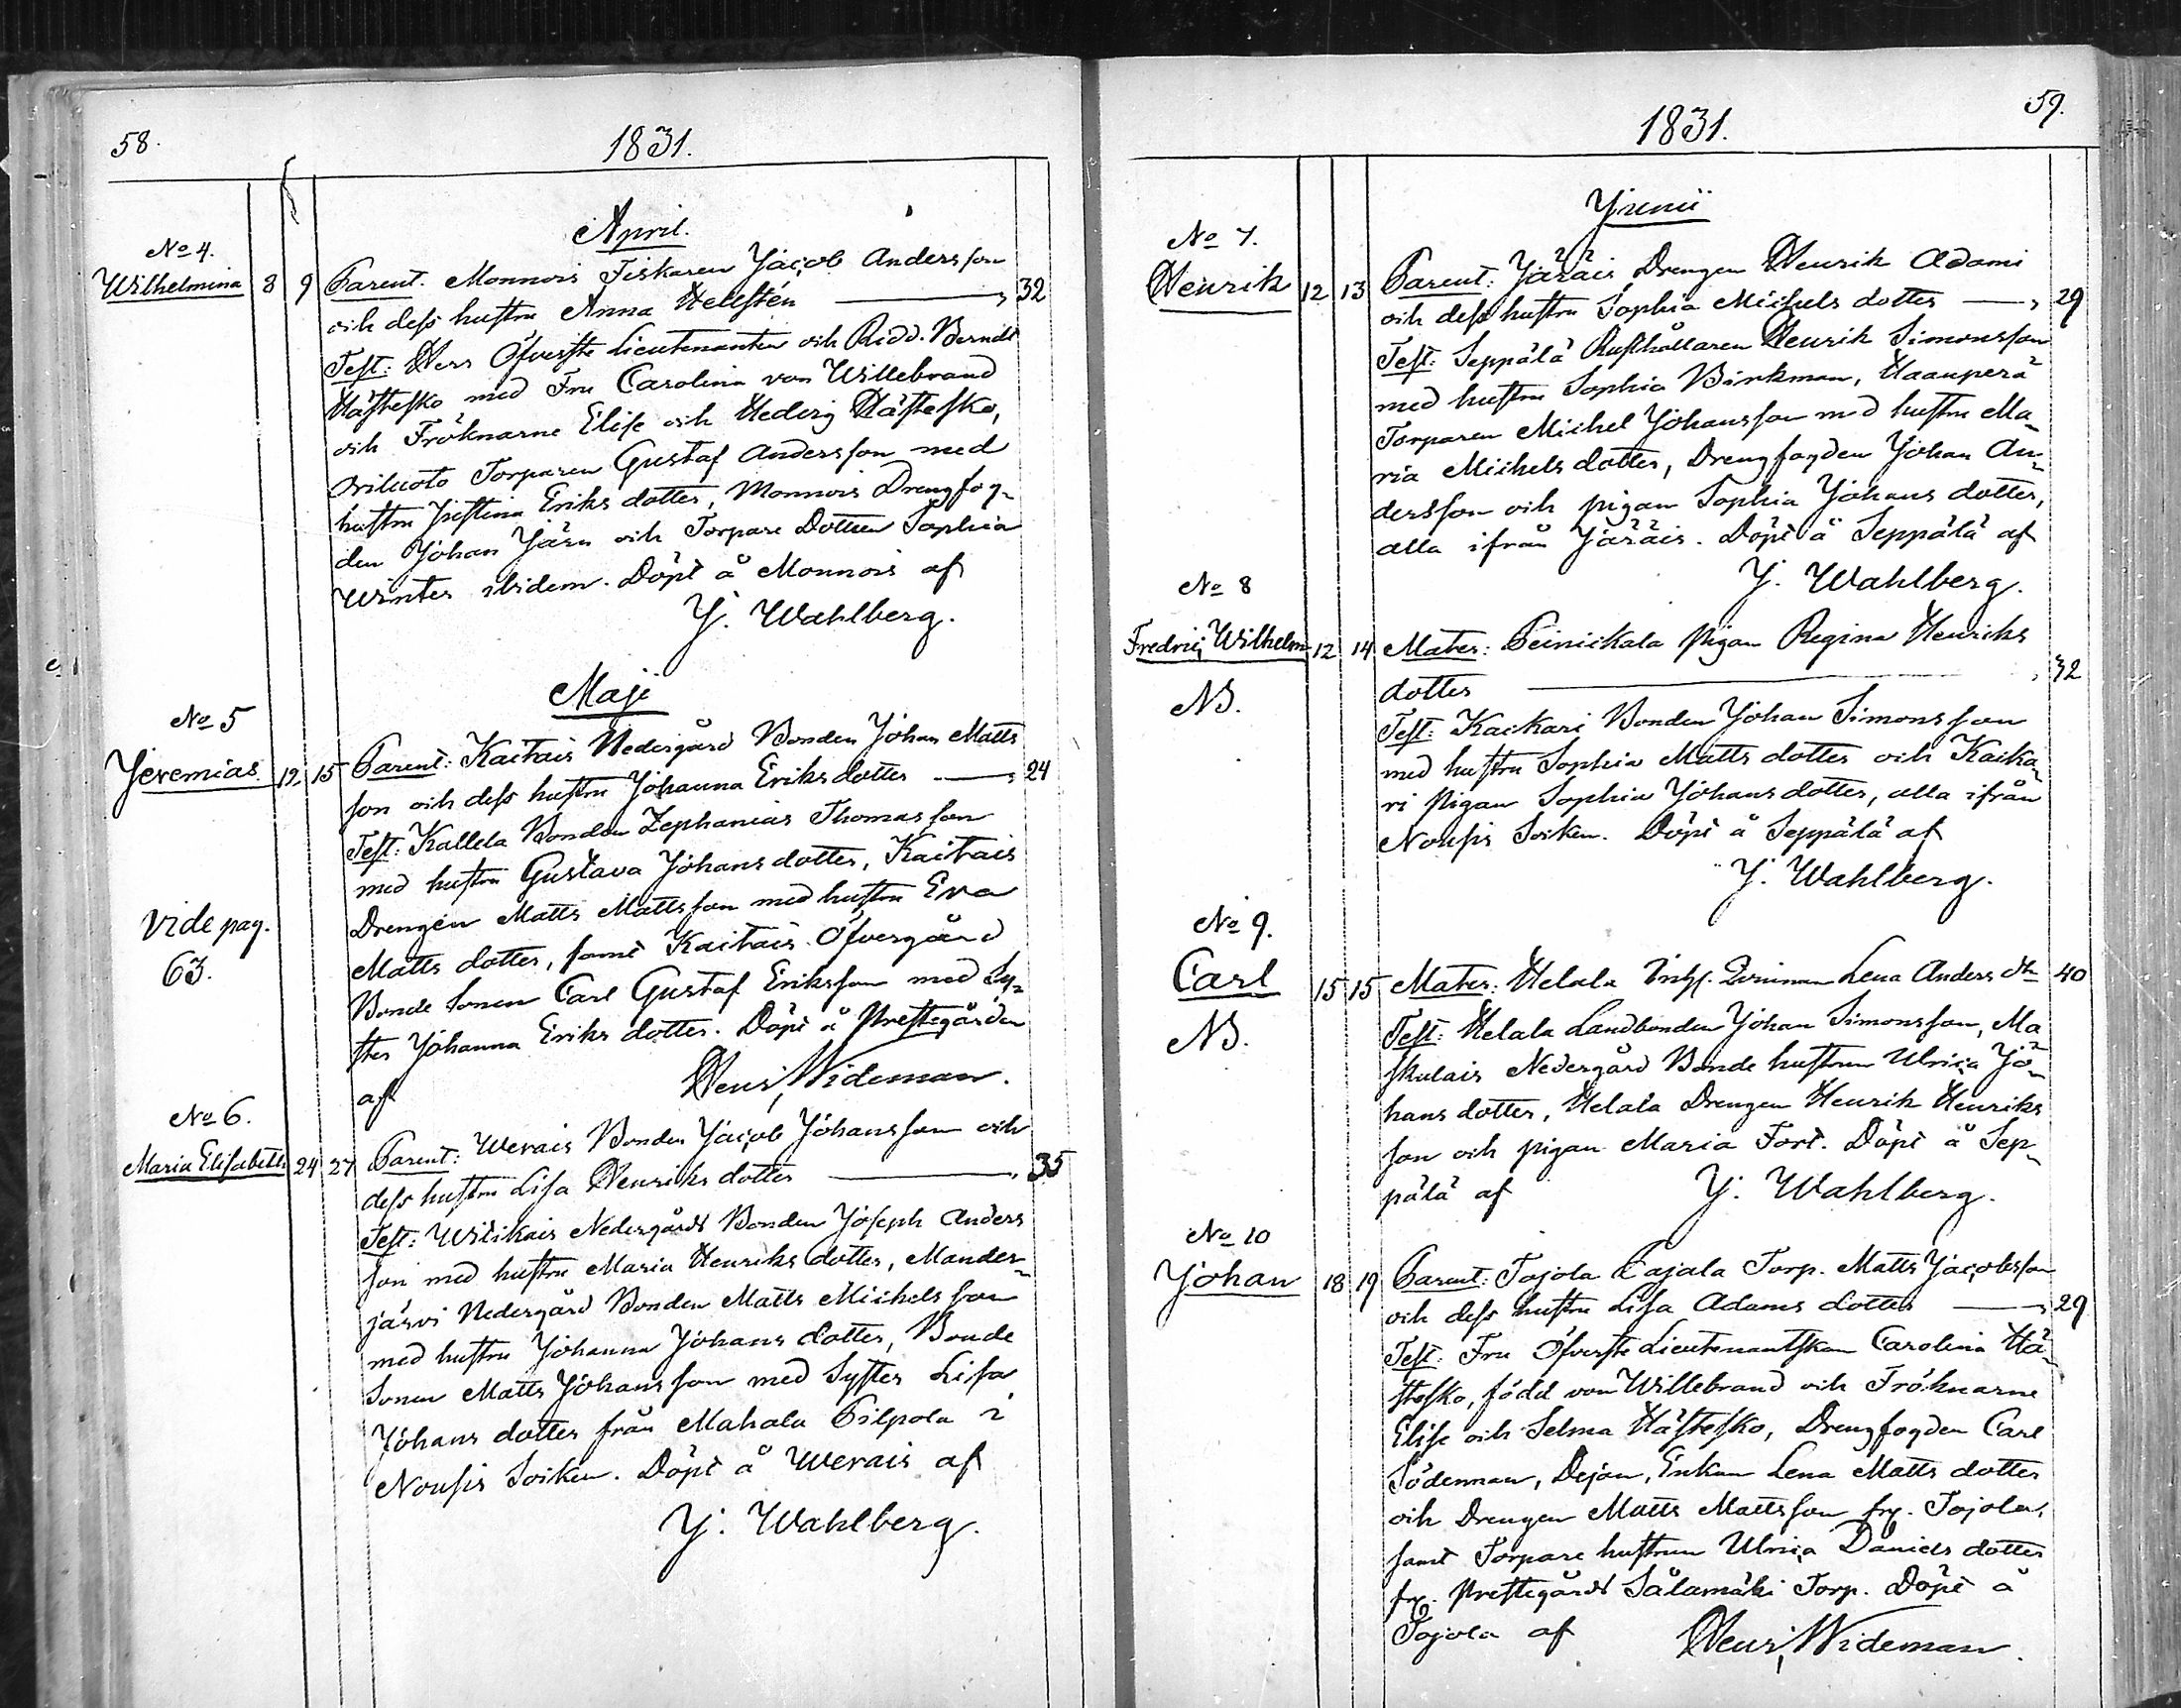 58.
1831.
April.
No 4.
Wilhelmina 8 9 Parent. Monnois Fiskaren Jacob Andersson
och dess hustru Anna Hellstén 32
Test: Herr Öfverste Lieutenanten och Ridd. Berndt
Hästesko med Fru Carolina von Willebrand
och Fröknarne Elise och Hedvig Hästesko,
Oriluoto Torparen Gustaf Andersson med
hustru Justina Eriks dotter, Monnois Drengfog-
den Johan Järn och Torpare Dottren Sophia
Winter ibidem. Döpt å Monnois af
J. Wahlberg.
Maji
No 5
Jeremias 12 15 Parent: Kaitais Nedergård Bonden Johan Matts
son och dess hustru Johanna Eriksdotter 24
Test: Kallela Bonden Zephanias Thomasson
med hustru Gustava Johansdotter, Kaitais
Drengen Matts Mattsson med hustru Eva
Vide pag. 63.
Matts dotter, samt Kaitais Öfvergård
Bonde Sonen Carl Gustaf Eriksson med Sy-
ster Johanna Eriks dotter. Döpt å Prestegården
af Henr. Wideman.
No 6.
Maria Elisabeth 24 27 Parent: Werais Bonden Jacob Johansson och
dess hustru Lisa Henriks dotter 35
Test: Wilikais Nedergårds Bonden Joseph Anders
son med hustru Maria Henriks dotter, Mander-
järvi Nedergård Bonden Matts Michelsson
med hustru Johanna Johans dotter, Bonde
Sonen Matts Johansson med Syster Lisa
Johans dotter från Mahala Pilpola i
Nousis Socken. Döpt å Werais af
J. Wahlberg.
59.
1831.
Junii
No 7.
Henrik 12 13 Parent: Järäis Drengen Henrik Adami
och dess hustru Sophia Michels dotter 29
Test: Seppälä Rusthållaren Henrik Simonsson
med hustru Sophia Birkman, Haanperä
Torparen Michel Johansson med hustru Ma-
ria Michels dotter, Drengfogden Johan An-
dersson och pigan Sophia Johans dotter,
alla ifrån Järäis. Döpt å Seppälä af
J. Wahlberg.
No 8
Fredric Wilhelm 12 14 Mater: Peinickala Pigan Regina Henriks
dotter 32
NB.
Test: Kaikari Bonden Johan Simonsson
med hustru Sophia Matts dotter och Kaika-
ri Pigan Sophia Johans dotter, alla ifrån
Nousis Socken. Döpt å Seppälä af
J. Wahlberg.
No 9.
Carl 15 15 Mater: Helala Qvinnan Lena Anders dtr 40
NB.
Test: Helala Landbonden Johan Simonsson, Ma
skulais Nedergård Bonde hustrun Ulrica Jo-
hans dotter, Helala Drengen Henrik Henriks
son och pigan Maria Fort. Döpt å Sep-
pälä af J. Wahlberg.
No 10
Johan 18 19 Parent: Tojola Cajala Torp. Matts Jacobsson
och dess hustru Lisa Adams dotter 29
Test: Fru Öfverste Lieutenantskan Carolina Hä-
stesko, född von Willebrand och Fröknarne
Elise och Selma Hästesko, Drengfogden Carl
Södenman, Dejan, Enkan Lena Matts dotter
och Drengen Matts Mattsson fr. Tojola,
samt Torpare hustrun Ulrica Daniels dotter
fr. Prestegårds Sålamäki Torp. Döpt å
Tojola af Henr. Wideman.